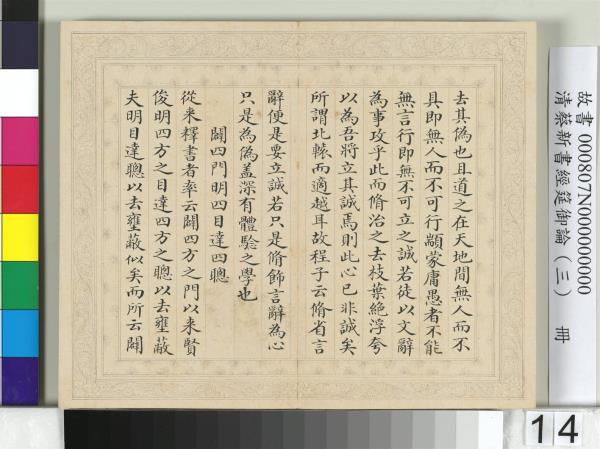 去其偽也且道之在天地間無人而不
具即無人而不可行顓蒙庸愚者不能
無言行即無不可立之誠若徒以文辭
為事攻乎此而脩治之去枝葉絕浮夸
以為吾將立其誠焉則此心已非誠矣
所謂北轅而適越耳故程子云脩省言
辭便是要立誠若只是脩飾言辭為心
只是為偽蓋深有體驗之學也
闢四門明四目達四聰
從來釋書者率云闢四方之門以来賢
俊明四方之目達四方之聰以去壅蔽
夫明目達聰以去壅蔽似矣而所云闢
故書 000807N000000000
清蔡新書經筵御論(三) 冊
14